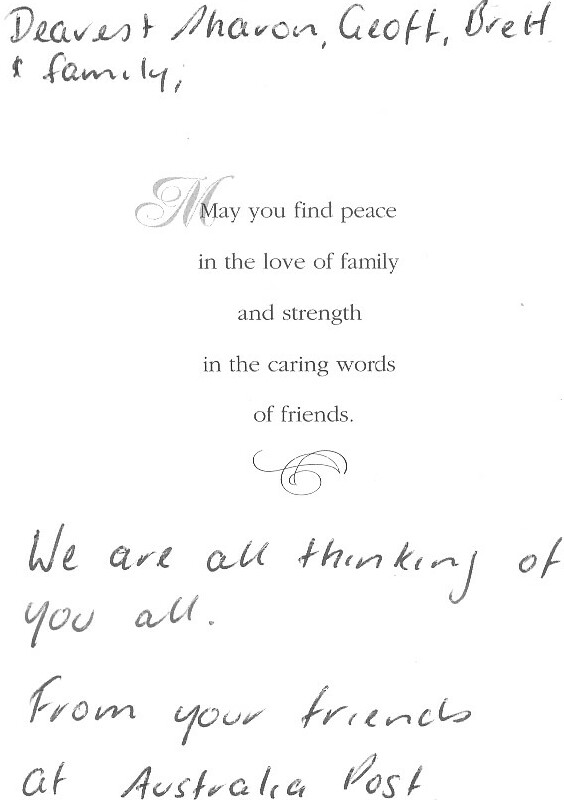 Dearest Sharon, Geoff, Brett
& family,
May you find peace
in the love of family
and strength
in the caring words
of friends.
We are all thinking of
you all.
From your friends
at Australia Post